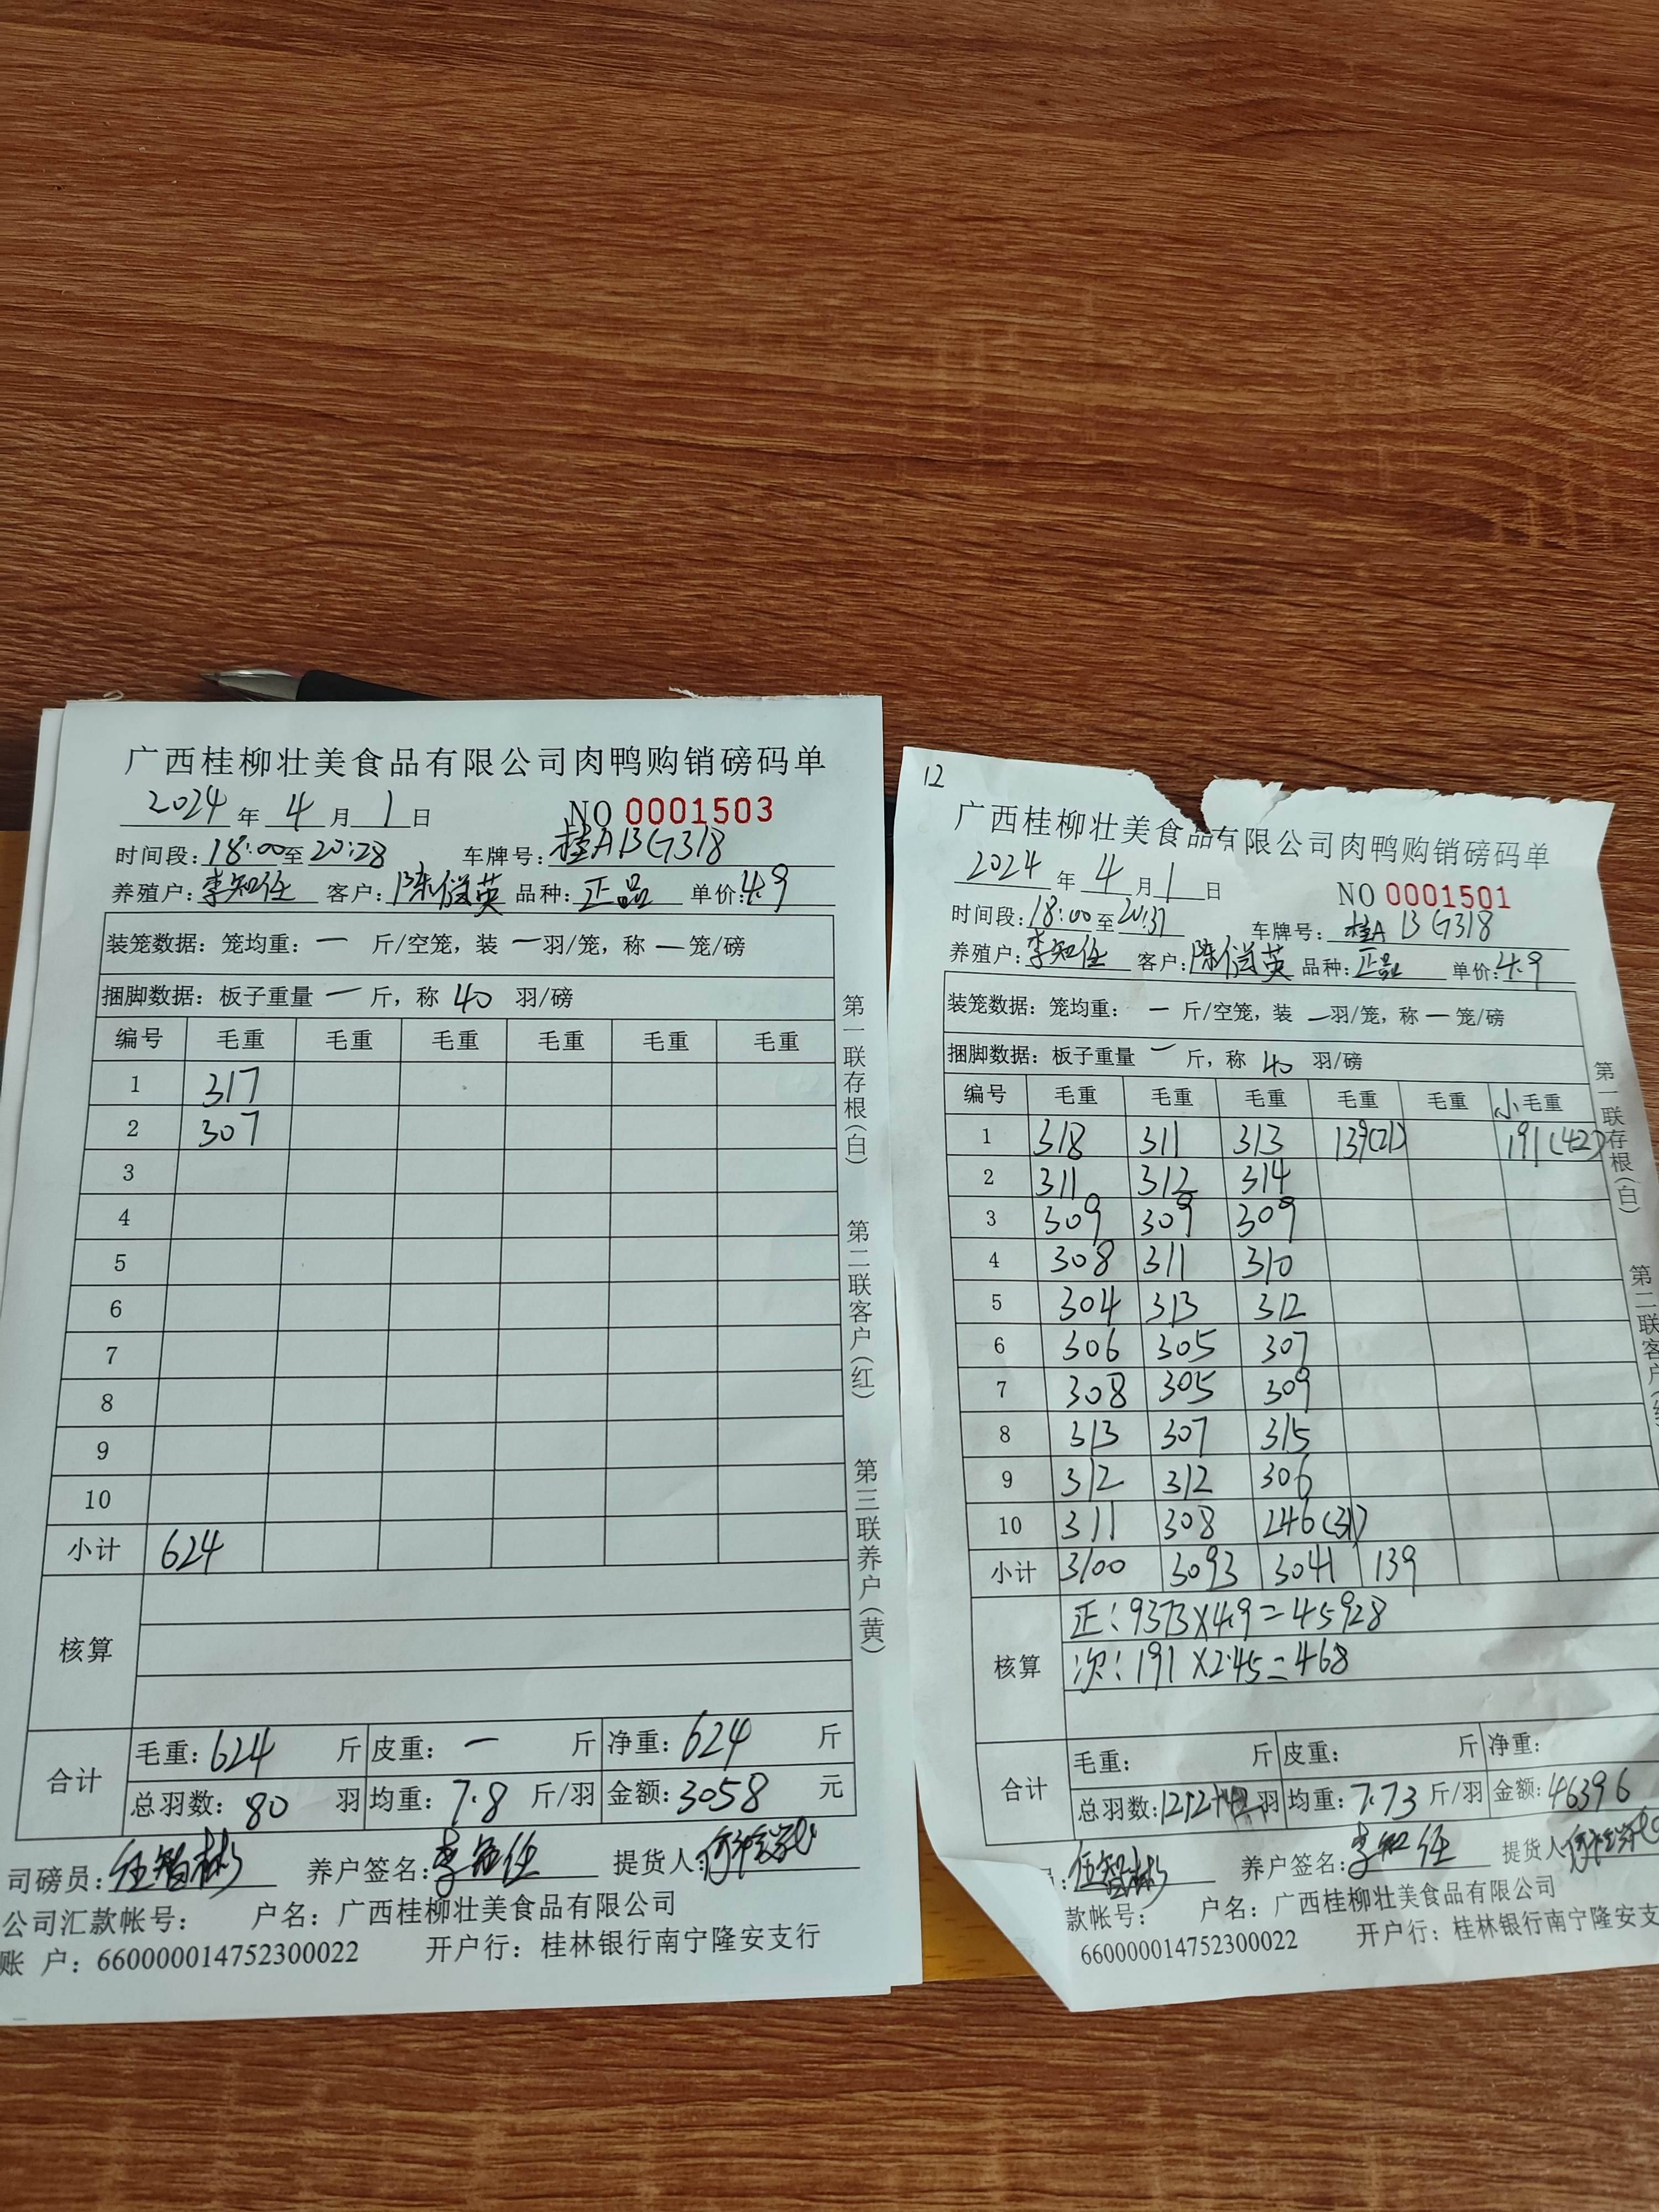 广西桂柳壮美食品有限公司肉鸭购销磅码单
2024 年 4 月 1 日 NO 0001503
时间段: 18:00至20:28 车牌号: 桂A BG318
养殖户: 李知任 客户: 陈 英 品种: 正品 单价: 4.9
装笼数据: 笼均重: 一 斤/空笼, 装 一 羽/笼, 称 一 笼/磅
捆脚数据: 板子重量 一 斤, 称 40 羽/磅
编号 毛重 毛重 毛重 毛重 毛重 毛重
1 317
2 307
3
4
5
6
7
8
9
10
小计 624
核算
合计 毛重: 624 斤 皮重: 一 斤 净重: 624 斤
总羽数: 80 羽 均重: 7.8 斤/羽 金额: 3058 元
司磅员: 伍智彬 养户签名: 李知任 提货人:
公司汇款帐号: 户名: 广西桂柳壮美食品有限公司
账 户: 660000014752300022 开户行: 桂林银行南宁隆安支行
第一联存根(白) 第二联客户(红) 第三联养户(黄)
12
广西桂柳壮美食品有限公司肉鸭购销磅码单
2024 年 4 月 1 日 NO 0001501
时间段: 18:00至20:37 车牌号: 桂A BG318
养殖户: 李知任 客户: 陈 英 品种: 正品 单价: 4.9
装笼数据: 笼均重: 一 斤/空笼, 装 一 羽/笼, 称 一 笼/磅
捆脚数据: 板子重量 一 斤, 称 40 羽/磅
编号 毛重 毛重 毛重 毛重 毛重 小毛重
1 318 311 313 139(21) 191(42)
2 311 312 314
3 309 309 309
4 308 311 310
5 304 313 312
6 306 305 307
7 308 305 309
8 313 307 315
9 312 312 306
10 311 308 246(31)
小计 3100 3093 3041 139
核算 正: 9373×4.9=45928
次: 191×2.45=468
合计 毛重: 斤 皮重: 斤 净重:
总羽数: 1212+42 羽 均重: 7.73 斤/羽 金额: 46396
: 伍智彬 养户签名: 李知任 提货人:
款帐号: 户名: 广西桂柳壮美食品有限公司
660000014752300022 开户行: 桂林银行南宁隆安支
第一联存根(白) 第二联客户(红